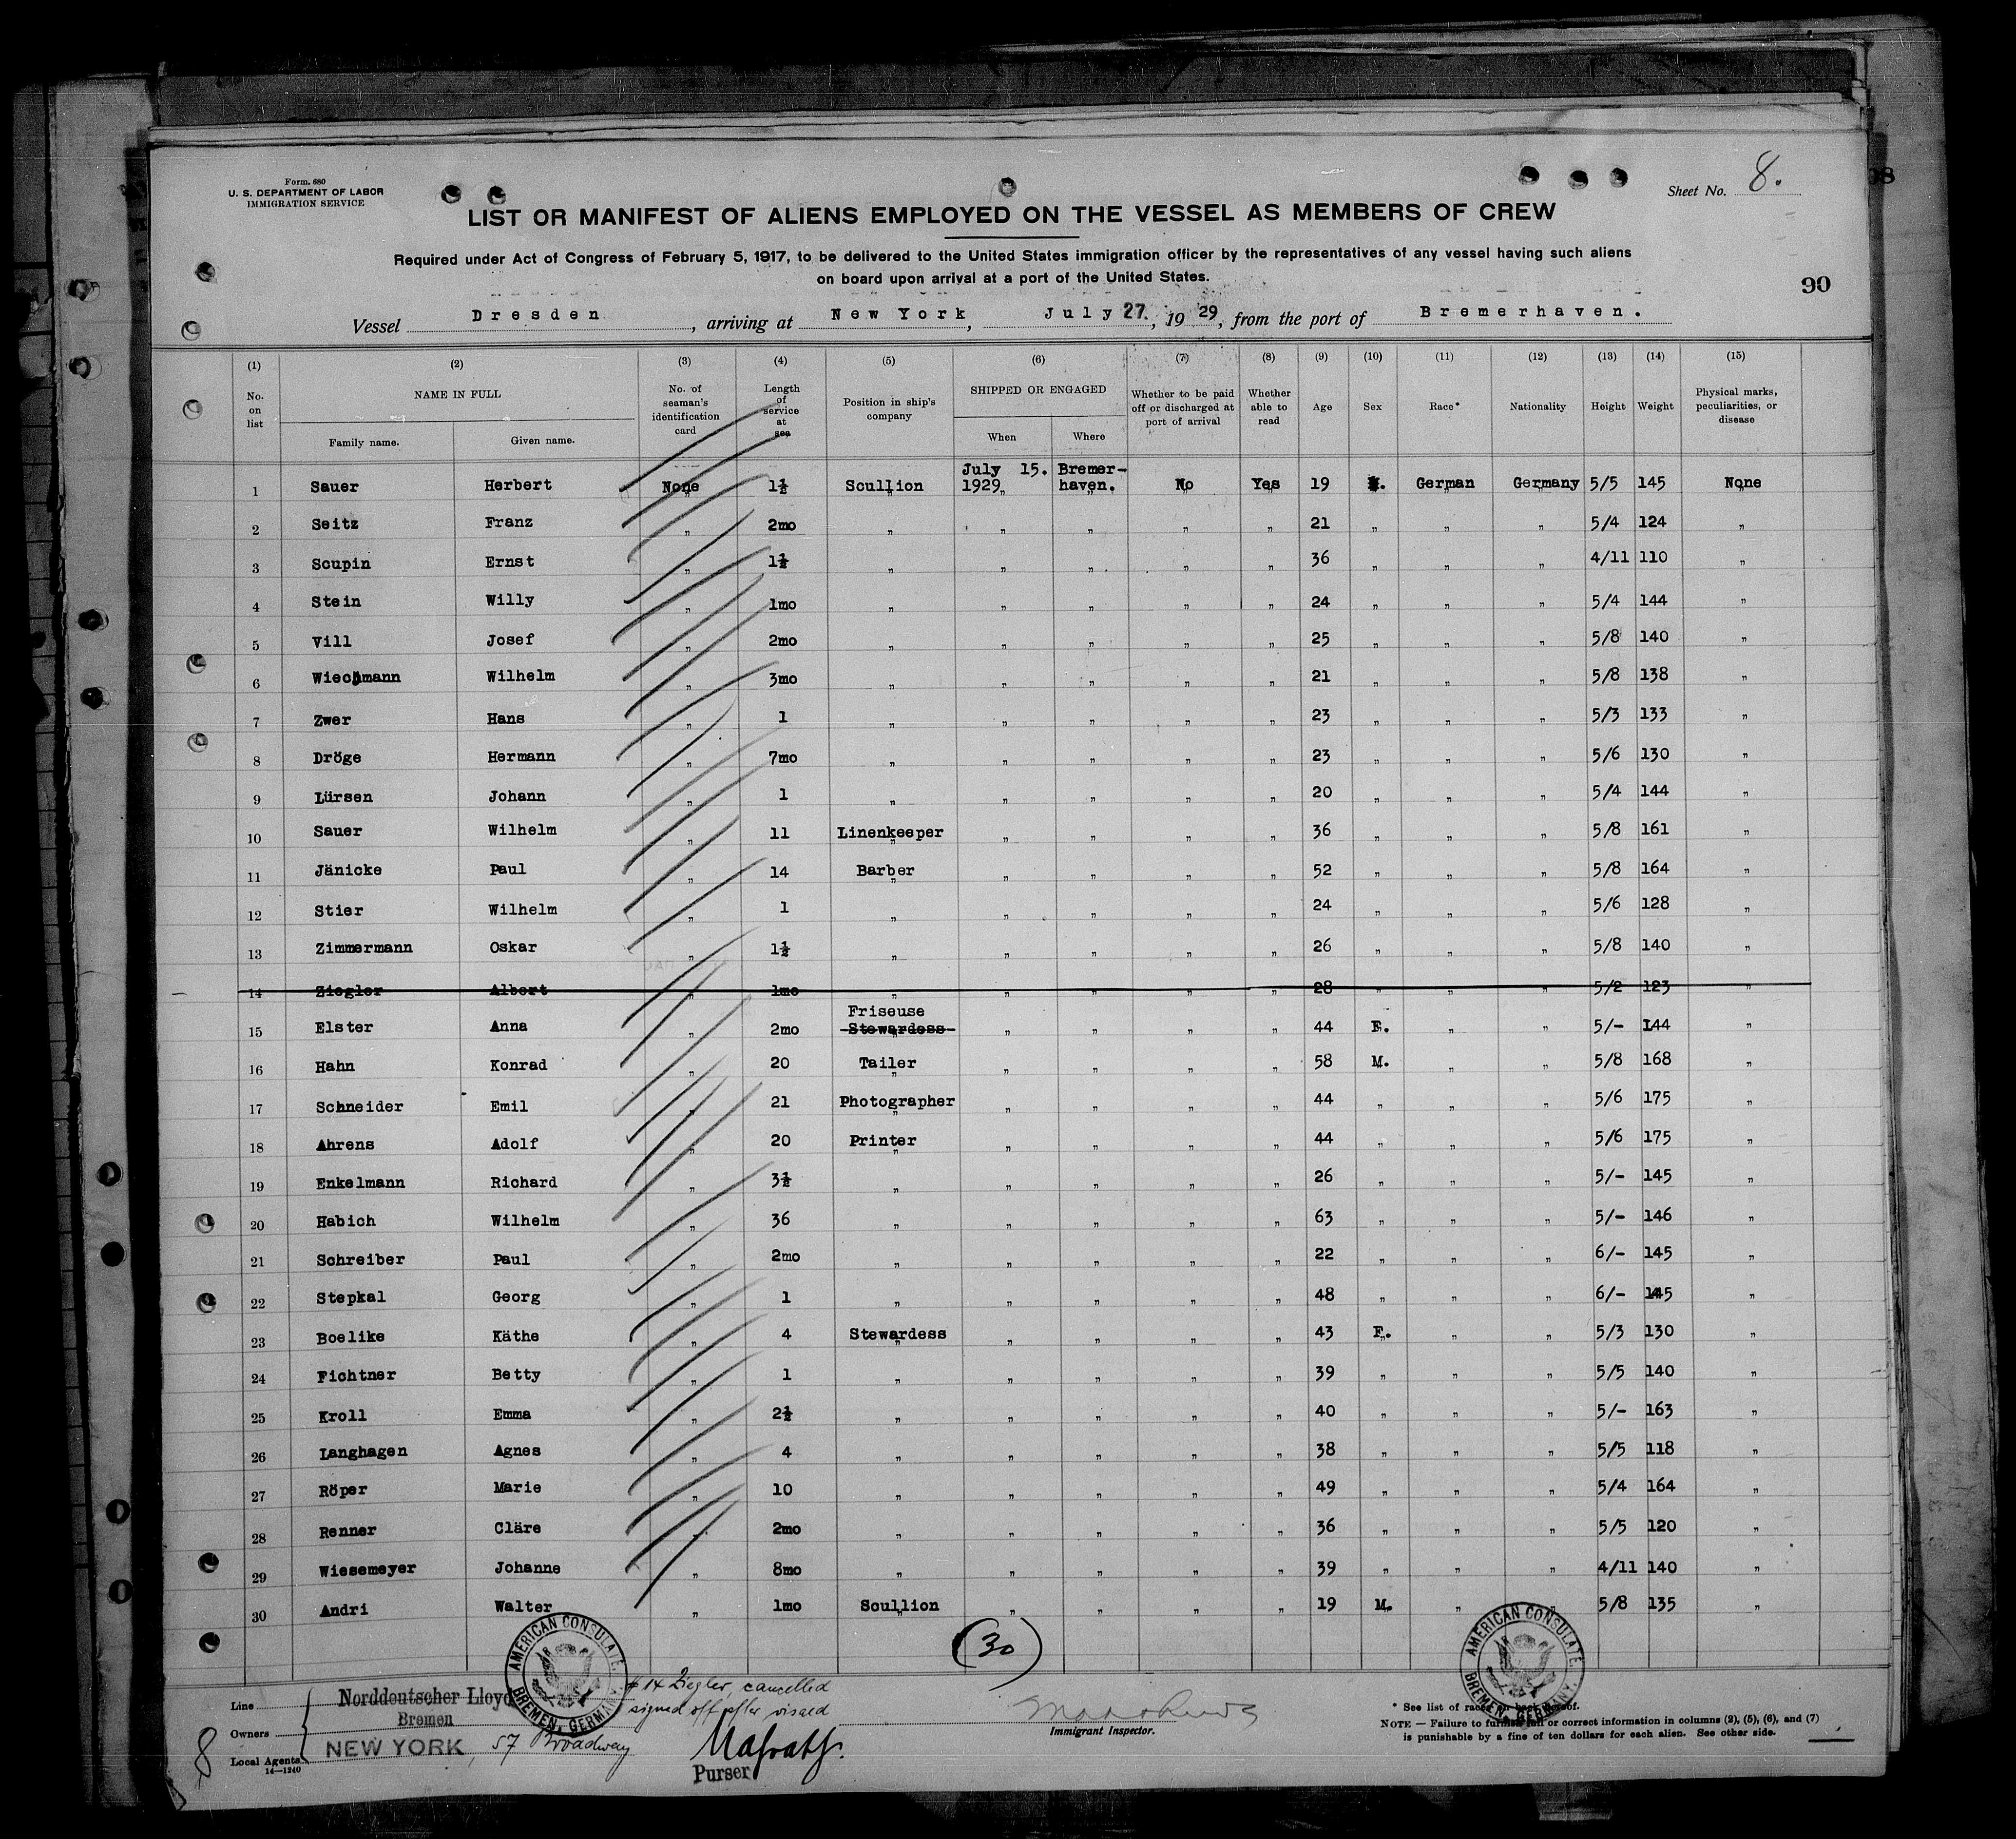 Form. 680
U. S. DEPARTMENT OF LABOR
IMMIGRATION SERVICE
Sheet No. 8.
98
LIST OR MANIFEST OF ALIENS EMPLOYED ON THE VESSEL AS MEMBERS OF CREW
Required under Act of Congress of February 5, 1917, to be delivered to the United States immigration officer by the representatives of any vessel having such aliens
on board upon arrival at a port of the United States.
90
Vessel Dresden, arriving at New York, July 27., 19 29, from the port of Bremerhaven.
(1) (2) (3) (4) (5) (6) (7) (8) (9) (10) (11) (12) (13) (14) (15)
No. on list NAME IN FULL Family name. Given name. No. of seaman's identification card Length of service at sea Position in ship's company SHIPPED OR ENGAGED When Where Whether to be paid off or discharged at port of arrival Whether able to read Age Sex Race* Nationality Height Weight Physical marks, peculiarities, or disease
1 Sauer Herbert None 1½ Scullion July 15. 1929 Bremerhaven. No Yes 19 German Germany 5/5 145 None
2 Seitz Franz " 2mo " " " " " 21 " " " 5/4 124 "
3 Scupin Ernst " 1½ " " " " " 36 " " " 4/11 110 "
4 Stein Willy " 1mo " " " " " 24 " " " 5/4 144 "
5 Vill Josef " 2mo " " " " " 25 " " " 5/8 140 "
6 Wiechmann Wilhelm " 3mo " " " " " 21 " " " 5/8 138 "
7 Zwer Hans " 1 " " " " " 23 " " " 5/3 133 "
8 Dröge Hermann " 7mo " " " " " 23 " " " 5/6 130 "
9 Lürsen Johann " 1 " " " " " 20 " " " 5/4 144 "
10 Sauer Wilhelm " 11 Linenkeeper " " " " 36 " " " 5/8 161 "
11 Jänicke Paul " 14 Barber " " " " 52 " " " 5/8 164 "
12 Stier Wilhelm " 1 " " " " " 24 " " " 5/6 128 "
13 Zimmermann Oskar " 1½ " " " " " 26 " " " 5/8 140 "
14 Ziegler Albert " 1mo " " " " " 28 " " " 5/2 123 "
15 Elster Anna " 2mo Friseuse Stewardess " " " " 44 F. " " 5/- 144 "
16 Hahn Konrad " 20 Tailer " " " " 58 M. " " 5/8 168 "
17 Schneider Emil " 21 Photographer " " " " 44 " " " 5/6 175 "
18 Ahrens Adolf " 20 Printer " " " " 44 " " " 5/6 175 "
19 Enkelmann Richard " 3½ " " " " " 26 " " " 5/- 145 "
20 Habich Wilhelm " 36 " " " " " 63 " " " 5/- 146 "
21 Schreiber Paul " 2mo " " " " " 22 " " " 6/- 145 "
22 Stepkal Georg " 1 " " " " " 48 " " " 6/- 145 "
23 Boelike Käthe " 4 Stewardess " " " " 43 F. " " 5/3 130 "
24 Fichtner Betty " 1 " " " " " 39 " " " 5/5 140 "
25 Kroll Emma " 2½ " " " " " 40 " " " 5/- 163 "
26 Langhagen Agnes " 4 " " " " " 38 " " " 5/5 118 "
27 Röper Marie " 10 " " " " " 49 " " " 5/4 164 "
28 Renner Cläre " 2mo " " " " " 36 " " " 5/5 120 "
29 Wiesemeyer Johanne " 8mo " " " " " 39 " " " 4/11 140 "
30 Andri Walter " 1mo Scullion " " " " 19 M. " " 5/8 135 "
(30)
AMERICAN CONSULATE. BREMEN, GERMANY.
AMERICAN CONSULATE. BREMEN, GERMANY.
Line Norddeutscher Lloyd
Bremen
Owners
Local Agents NEW YORK, 57 Broadway
14—1240
8
# 14 Ziegler, cancelled
signed off after visaed
Purser
Immigrant Inspector.
* See list of races on back hereof.
NOTE — Failure to furnish full or correct information in columns (2), (5), (6), and (7)
is punishable by a fine of ten dollars for each alien. See other side.